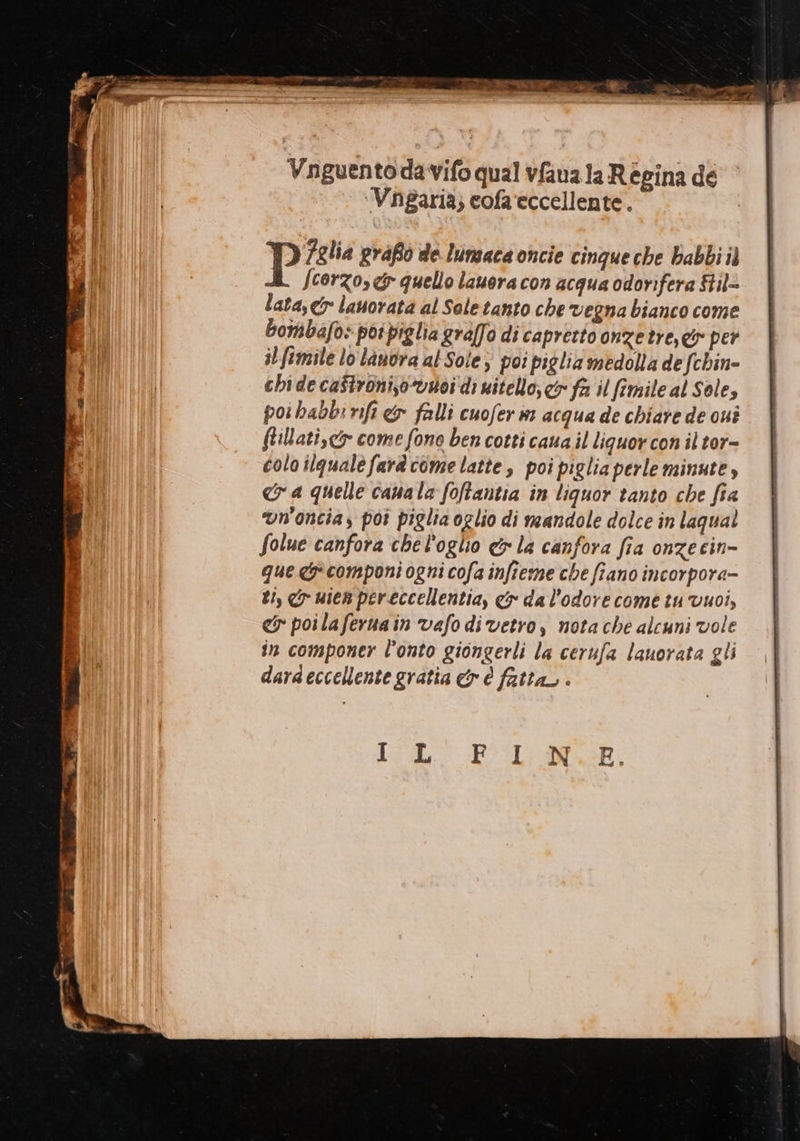 Vnguento da viſo qual vſaua la Regina de
Vngaria, coſa eccellente.
Piglia graſſo de lumaca oncie cinque che habbi il
ſcorzo, & quello lauora con acqua odorifera ſtil-
lata, & lauorata al Sole tanto che vegna bianco come
bombaſo: poi piglia graſſo di capretto onze tre, & per
il ſimile lo lauora al Sole, poi piglia medolla de ſchin-
chi de caſtroni, o vuoi di uitello, & fa il ſimile al Sole,
poi habbi riſi & falli cuoſer in acqua de chiare de oui
ſtillati, & come ſono ben cotti caua il liquor con il tor-
colo ilquale farà come latte, poi piglia perle minute,
& a quelle caua la ſoſtantia in liquor tanto che ſia
vn'oncia, poi piglia oglio di mandole dolce in laqual
ſolue canfora che l'oglio & la canfora ſia onze cin-
que & componi ogni coſa inſieme che ſiano incorpora-
ti, & uien per eccellentia, & da l'odore come tu vuoi,
& poi la ſerua in vaſo di vetro, nota che alcuni vole
in componer l'onto giongerli la ceruſa lauorata gli
darà eccellente gratia & è fatta.
IL FINE.